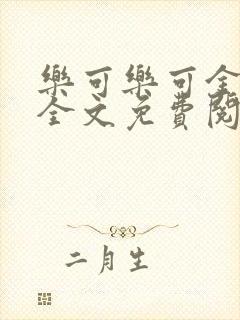 樂可樂可全
全文免費閱
二月生